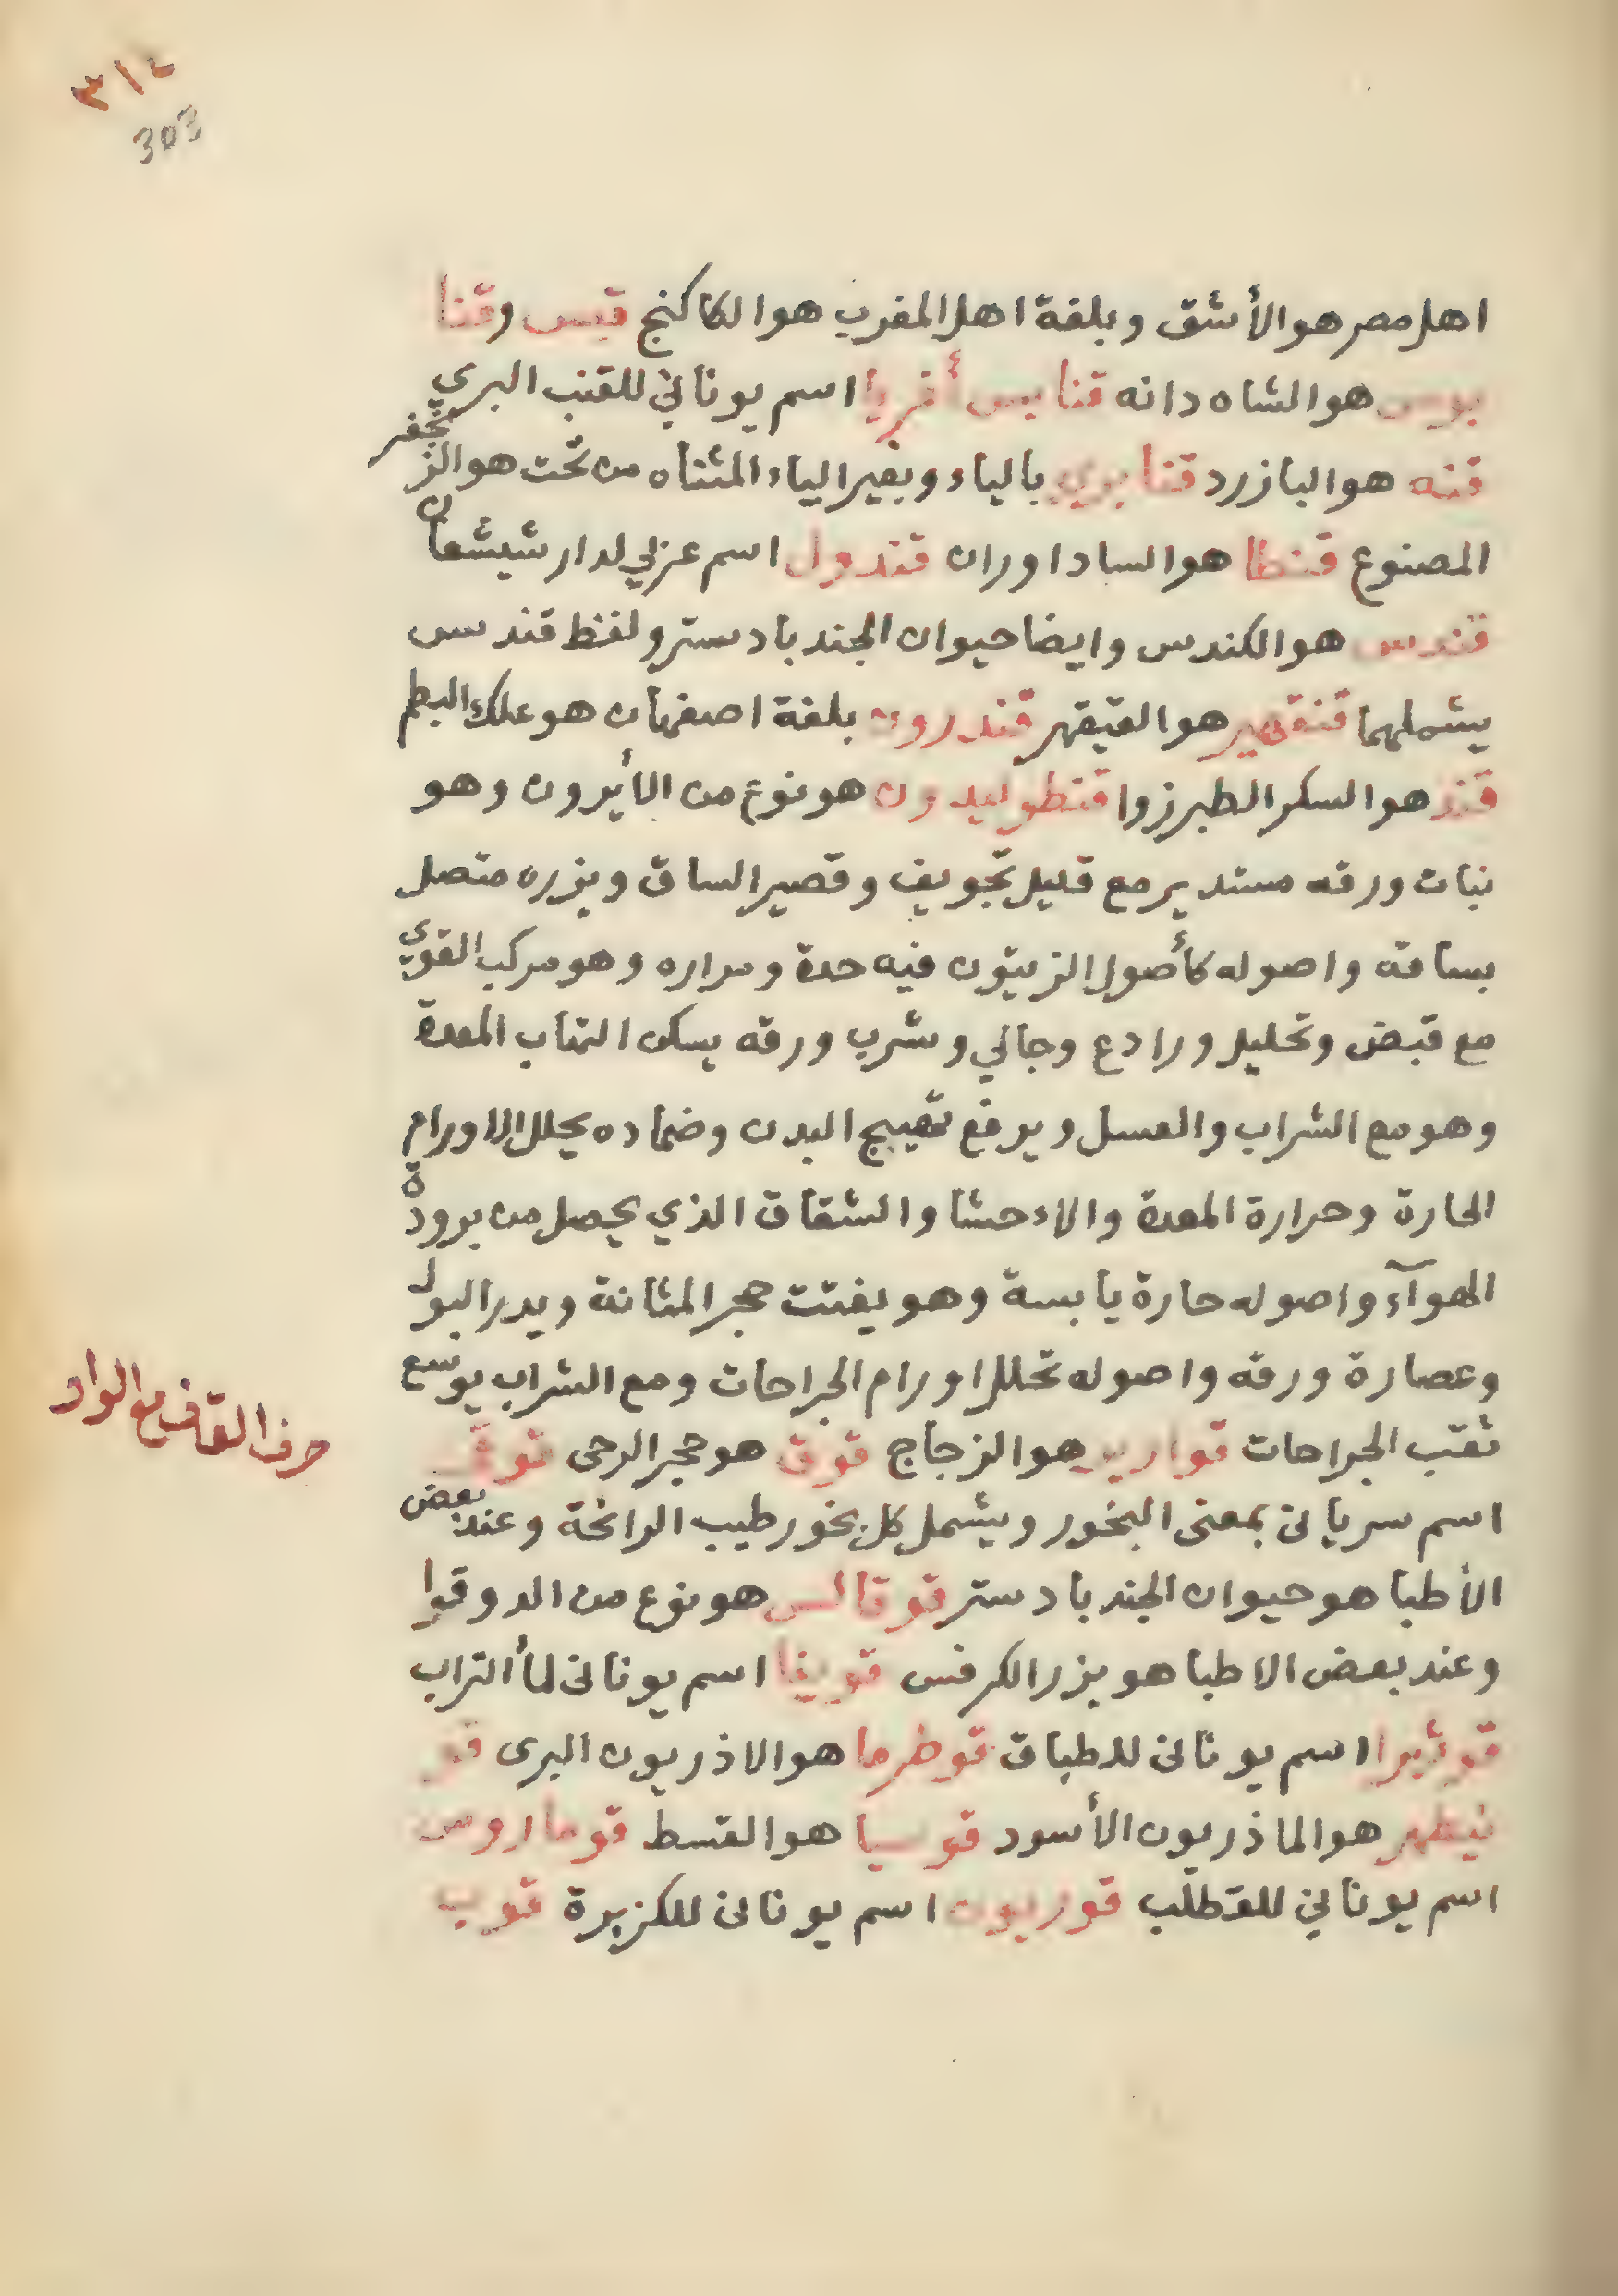 ٣١٤
303
اهل مصر هو الأشق وبلغة اهل المغرب هو الكاكنج قبس وقنا
بوس هو الشاه دانه قنابس أغريا اسم يوناني للقنب البري
قنه هو البازرد قنابري بالياء وبغير الياء المثناه من تحت هو الزنجفر
المصنوع قنطا هو الساداوران قندول اسم عزبي لدار شيشعان
قندس هو الكندس وايضا حيوان الجندبادستر ولفظ قندس
يشملهما قنقهير هو القيقهر قندرون بلغة اصفهان هو علك البطم
قند هو السكر الطبرزوا قنطوليدون هو نوع من الأيرون وهو
نبات ورقه مستدير مع قليل تجويف وقصير الساق وبزره متصل
بساقه واصوله كأصول الزيتون فيه حدة ومراره وهو مركب القوي
مع قبض وتحليل ورادع وجالي وشرب ورقه يسكن التهاب المعدة
وهو مع الشراب والعسل ويرفع تهييج البدن وضماده يحلل الاورام
الحارة وحرارة المعدة والاءحشا والشقاق الذي يحصل من برودة
الهوآء واصوله حارة يابسة وهو يفتت حجر المثانة ويدر البول
وعصارة ورقه واصوله تحلل اورام الجراحات ومع الشراب يوسع
ثقب الجراحات قوارير هو الزجاج قوق هو حجر الرحى قوفى
حرف القاف مع الواو
اسم سرياني بمعنى البخور ويشمل كل بخور طيب الرائحة وعند بعض
الأطبا هو حيوان الجندبادستر قوقالس هو نوع من الدوقوا
وعند بعض الاطبا هو بزر الكرفس قوينا اسم يوناني لمأ التراب
قوئيرا اسم يوناني للطباق قوظرما هو الاذريون البرى قو
نيطهر هو الماذريون الأسود قوسيا هو القسط قوماروس
اسم يوناني للقطلب قوريون اسم يوناني للكزبرة قوب